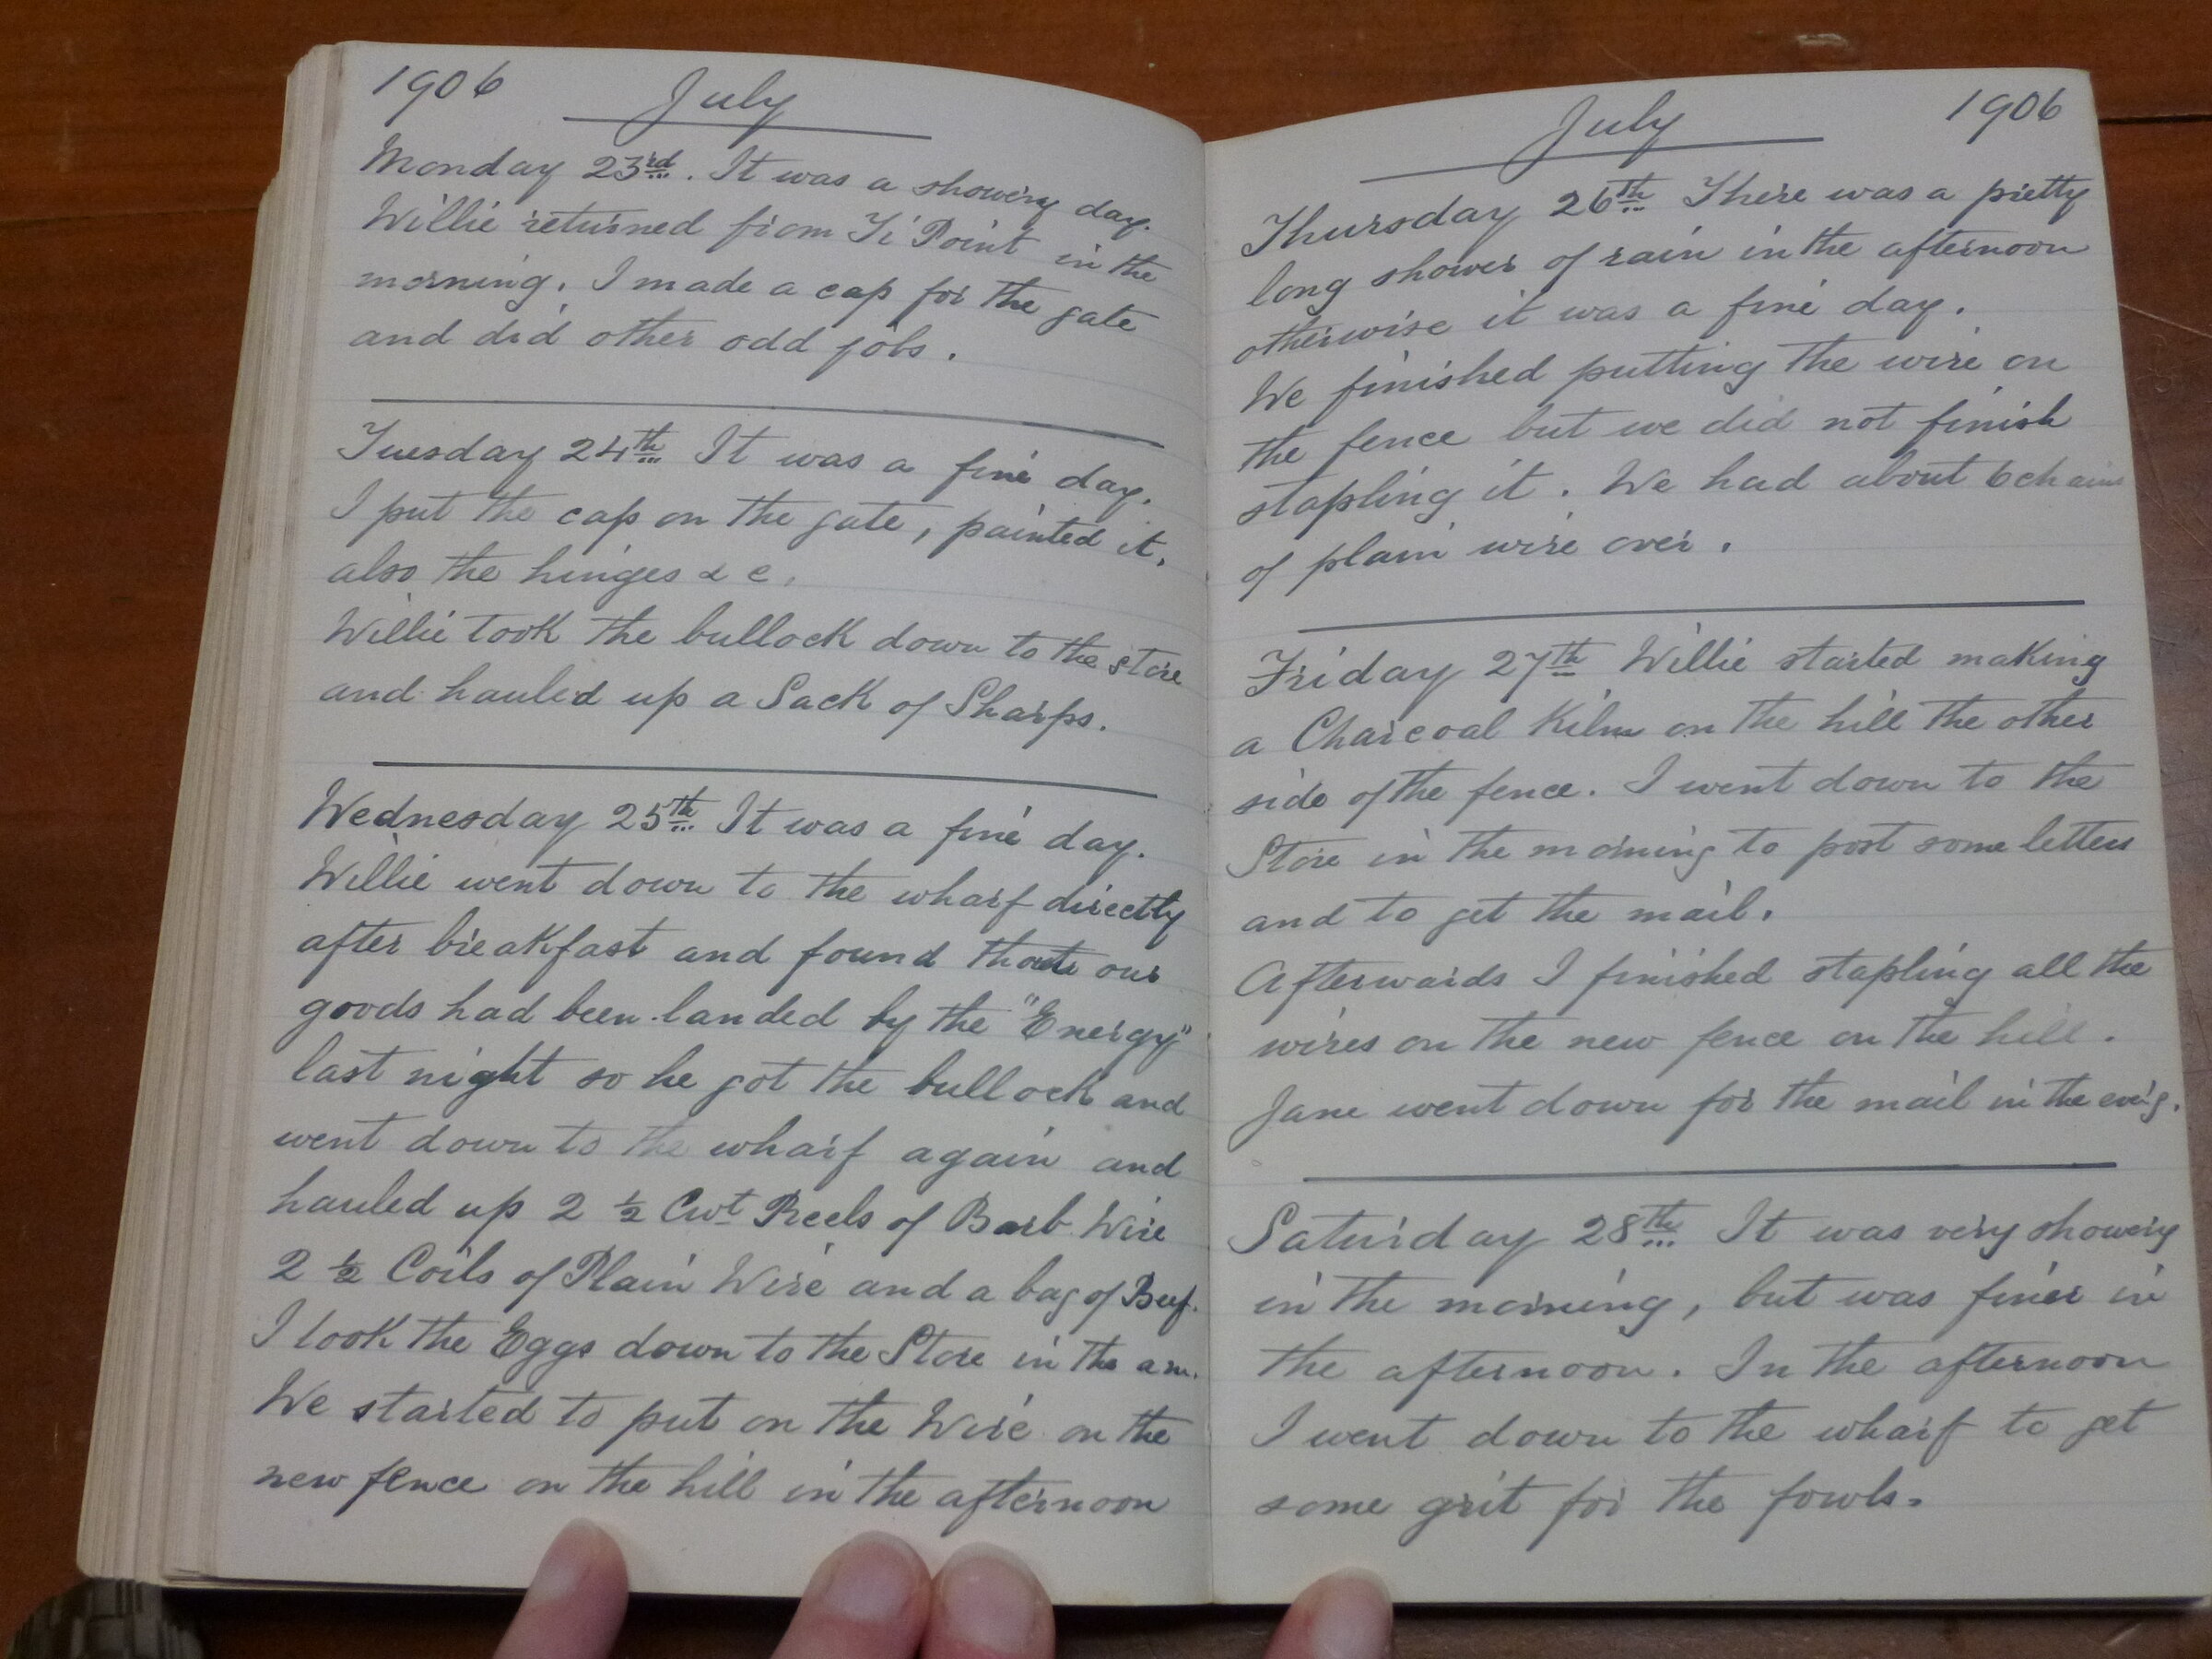 1906 July
Monday 23rd. It was a showery day.
Willie returned from Ti Point in the
morning. I made a cap for the gate
and did other odd jobs.
Tuesday 24th It was a fine day.
I put the cap on the gate, painted it,
also the hinges &c.
Willie took the bullock down to the store
and hauled up a Sack of Sharps.
Wednesday 25th It was a fine day.
Willie went down to the wharf directly
after breakfast and found our
goods had been landed by the "Energy"
last night so he got the bullock and
went down to the wharf again and
hauled up 2 ½ Cwt Reels of Barb Wire
2 ½ Coils of Plain Wire and a bag of Beef.
I took the Eggs down to the Store in the am.
We started to put on the Wire on the
new fence on the hill in the afternoon
July 1906
Thursday 26th There was a pretty
long shower of rain in the afternoon
otherwise it was a fine day.
We finished putting the wire on
the fence but we did not finish
stapling it. We had about 6 chains
of plain wire over.
Friday 27th Willie started making
a Charcoal Kiln on the hill the other
side of the fence. I went down to the
Store in the morning to post some letters
and to get the mail.
Afterwards I finished stapling all the
wires on the new fence on the hill.
Jane went down for the mail in the ev'g.
Saturday 28th It was very showery
in the morning, but was finer in
the afternoon. In the afternoon
I went down to the wharf to get
some grit for the fowls.